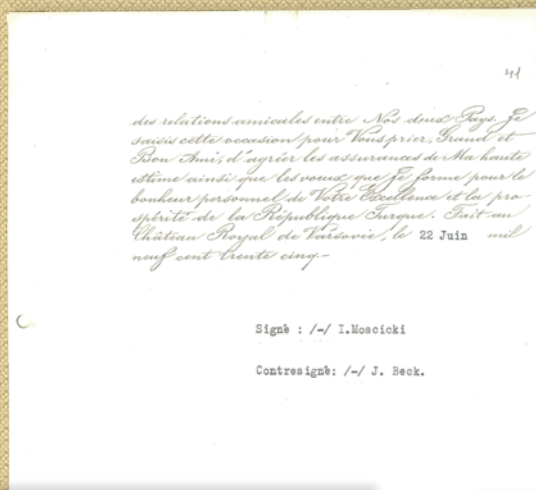 41
des relations amicales entre Nos deux Pays. Je
saisis cette occasion pour Vous prier, Grand et
Bon Ami, d'agréer les assurances de Ma haute
estime ainsi que les voeux que Je forme pour le
bonheur personnel de Votre Excellence et la pro-
spérité de la République Turque. Fait au
Château Royal de Varsovie, le 22 Juin mil
neuf cent trente cinq.-
Signè : /-/ I.Moscicki
Contresignè: /-/ J. Beck.